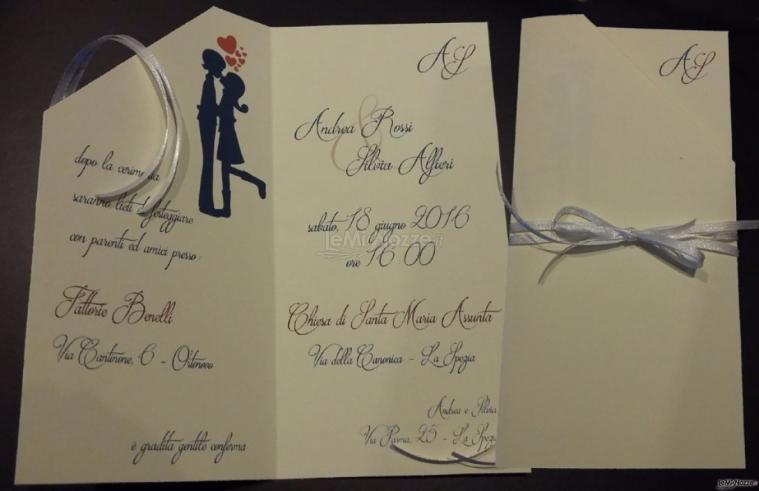 dopo la cerimonia
saranno lieti di festeggiare
con parenti ed amici presso:
Fattorie Benelli
Via Canterone, 6 - Ortonovo
è gradita gentile conferma
AS
Andrea Rossi
&
Silvia Alfieri
sabato, 18 giugno 2016
ore 16 00
Chiesa di Santa Maria Assunta
Via della Canonica - La Spezia
Andrea e Silvia
Via Parma, 25 - La Spezi
AS
LeMieNozze.it
LeMieNozze.it